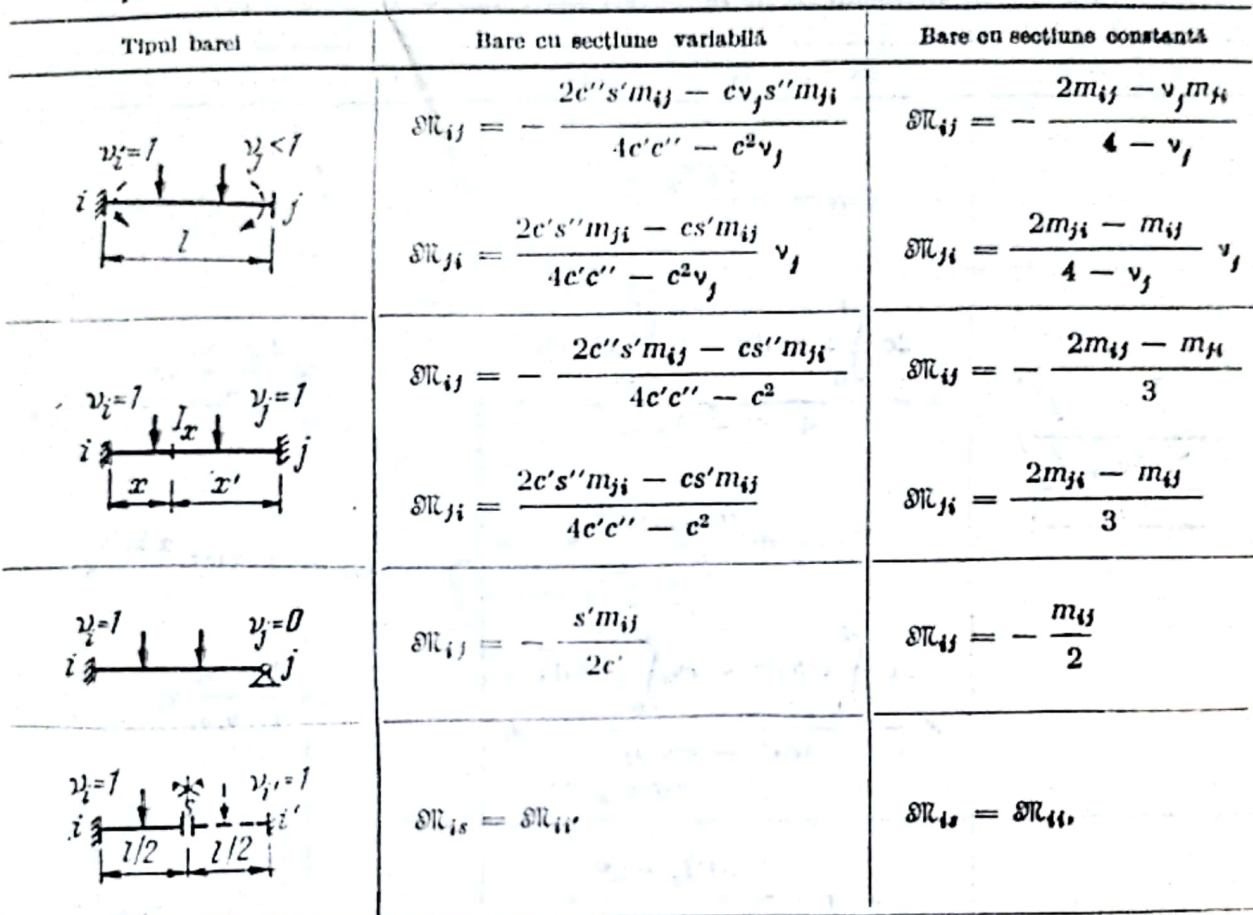 Tipul barei | Bare cu secțiune variabilă | Bare cu secțiune constantă
ν_i=1 ν_j<1
i j
l
𝔐_{ij} = − (2c''s'm_{ij} − cν_js''m_{ji}) / (4c'c'' − c²ν_j)
𝔐_{ij} = − (2m_{ij} − ν_jm_{ji}) / (4 − ν_j)
𝔐_{ji} = (2c's''m_{ji} − cs'm_{ij}) / (4c'c'' − c²ν_j) ν_j
𝔐_{ji} = (2m_{ji} − m_{ij}) / (4 − ν_j) ν_j
ν_i=1 ν_j=1
i I_x j
x x'
𝔐_{ij} = − (2c''s'm_{ij} − cs''m_{ji}) / (4c'c'' − c²)
𝔐_{ij} = − (2m_{ij} − m_{ji}) / 3
𝔐_{ji} = (2c's''m_{ji} − cs'm_{ij}) / (4c'c'' − c²)
𝔐_{ji} = (2m_{ji} − m_{ij}) / 3
ν_i=1 ν_j=0
i j
𝔐_{ij} = − s'm_{ij} / 2c'
𝔐_{ij} = − m_{ij} / 2
ν_i=1 ν_{i'}=1
i s i'
l/2 l/2
𝔐_{is} = 𝔐_{ii'}
𝔐_{is} = 𝔐_{ii'}